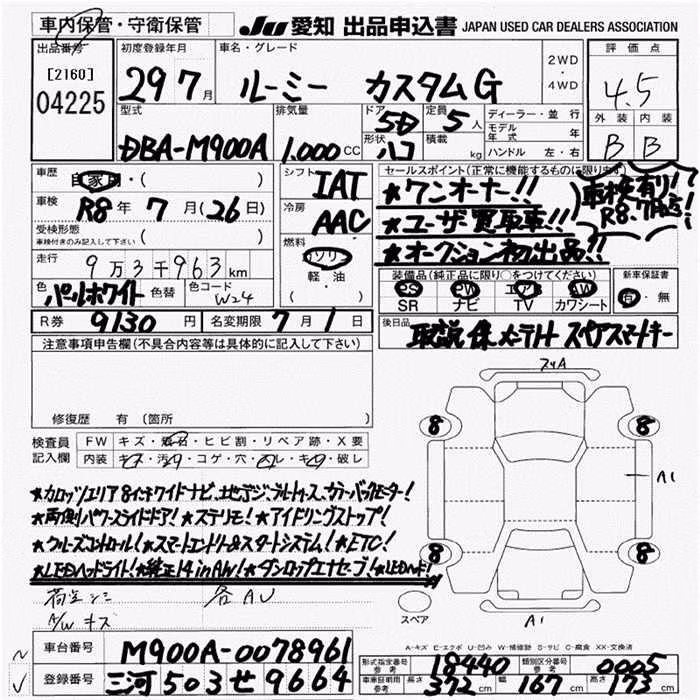 車内保管・守衛保管
JU 愛知 出品申込書 JAPAN USED CAR DEALERS ASSOCIATION
出品番号
[2160]
04225
初度登録年月
29 7月
車名・グレード
ルーミー カスタムG
2WD
・
4WD
評価点
4.5
外装 内装
B B
型式
DBA-M900A
排気量
1,000 CC
ドア 5D
形状 ハコ
定員 5人
積載 kg
ディーラー・並行
モデル年式 年
ハンドル 左・右
車歴
自家用・( )
車検
R8年 7月(26日)
受検形態
車検付きのみ記入して下さい ( )
走行
9万3千963km
色
パールホワイト 色替
色コード
W24
シフト
IAT
冷房
AAC
燃料
ガソリン
軽・油
( )
セールスポイント(正常に機能するものに限ります)
★ワンオーナー!!
★ユーザー買取車!!
★オークション初出品!!
車検有り!
R8.7月迄!
装備品(純正品に限り○をつけてください)
PS PW エアB AW
SR ナビ TV カワシート
新車保証書
有・無
R券 9130円
名変期限 7月1日
後日品
取説 保 メンテノート スペアスマートキー
注意事項申告欄(不具合内容等は具体的に記入して下さい)
修復歴 有 (箇所
検査員記入欄
FW キズ・飛石・ヒビ割・リペア跡・X要
内装 キズ・汚れ・コゲ・穴・スレ・キレ・破レ
★カロッツェリア8インチワイドナビ、フルセグ地デジ、ブルートゥース、カラーバックモニター!
★両側パワースライドドア!★ステリモ!★アイドリングストップ!
★クルーズコントロール!★スマートエントリー&スタートシステム!★ETC!
★LEDヘッドライト!★純正14inAW!★ダンロップエナセーブ!
荷室シミ 各AU
A/W キズ
8
8
8
8
A1
A1
スペア
A-キズ E-エクボ U-凹み W-補修跡 S-サビ C-腐食 XX-交換済
車台番号 M900A-0078961
登録番号 三河 503 せ 9664
形式指定番号 参考 18440
類別区分番号 参考 0005
車庫証明用 参考 長さ 372cm 幅 167cm 高さ 173cm